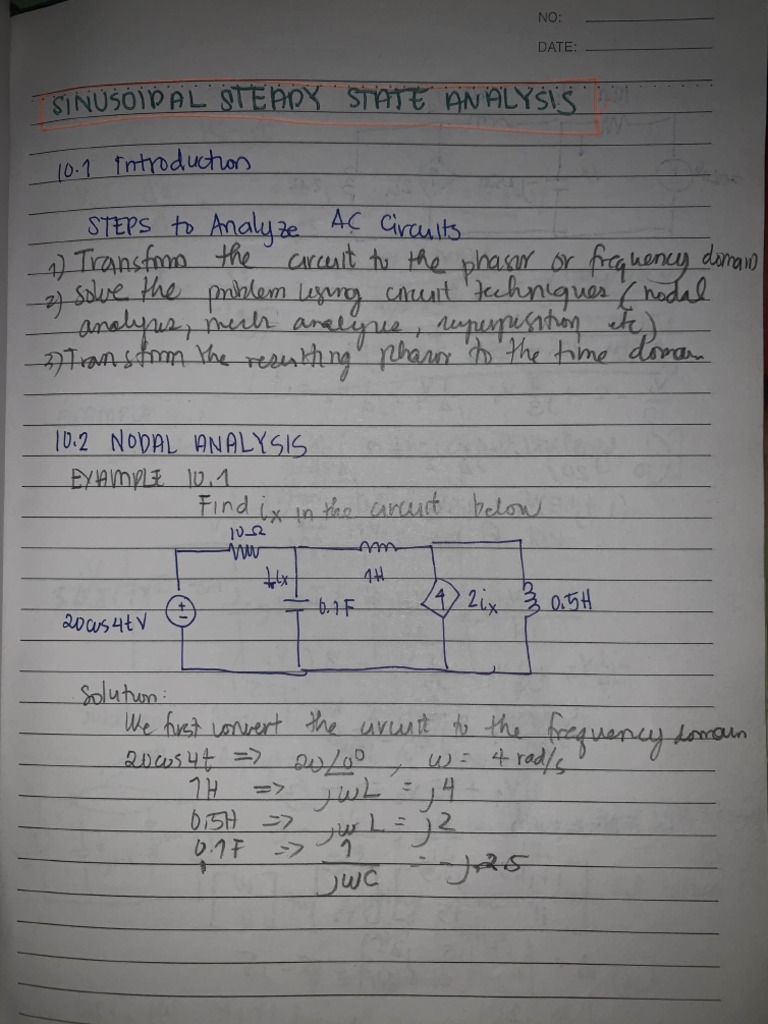 NO:
DATE:
SINUSOIDAL STEADY STATE ANALYSIS
10.1 Introduction
STEPS to Analyze AC Circuits
1) Transform the circuit to the phasor or frequency domain
2) Solve the problem using circuit techniques (nodal
analysis, mesh analysis, superposition etc)
3) Transform the resulting phasor to the time domain
10.2 NODAL ANALYSIS
EXAMPLE 10.1
Find ix in the circuit below
10Ω
ix
1H
20cos4t V
0.1F
2ix
0.5H
Solution:
We first convert the circuit to the frequency domain
20cos4t => 20∠0°, ω = 4 rad/s
1H => jωL = j4
0.5H => jωL = j2
0.1F => 1/jωC = -j2.5